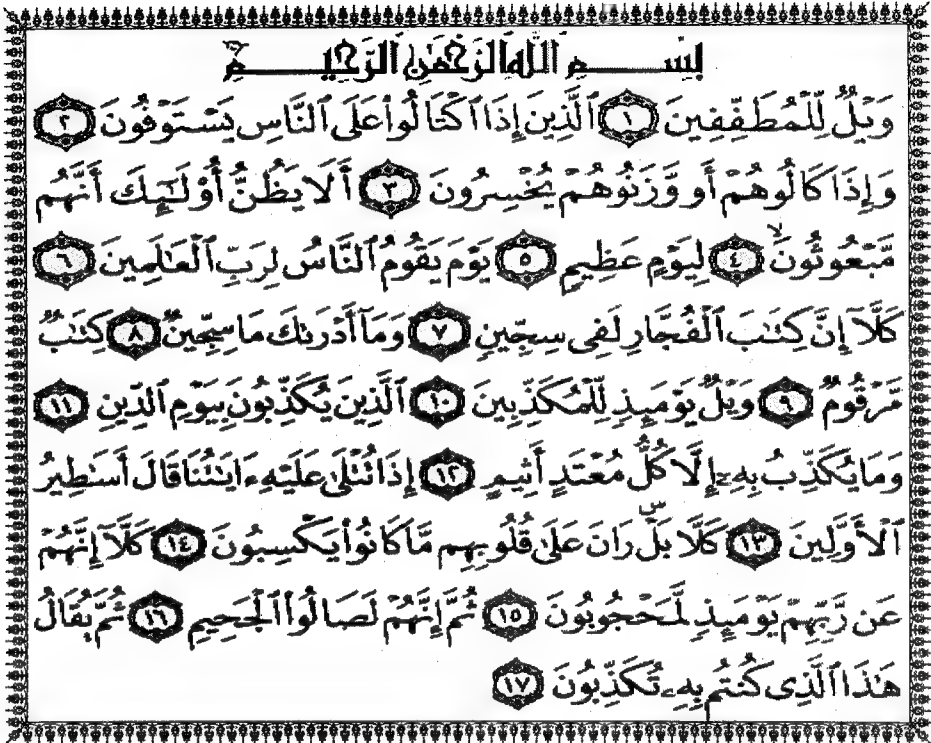 بِسْمِ ٱللَّهِ ٱلرَّحْمَٰنِ ٱلرَّحِيمِ
وَيْلٌ لِّلْمُطَفِّفِينَ ١ ٱلَّذِينَ إِذَا ٱكْتَالُوا۟ عَلَى ٱلنَّاسِ يَسْتَوْفُونَ ٢
وَإِذَا كَالُوهُمْ أَو وَّزَنُوهُمْ يُخْسِرُونَ ٣ أَلَا يَظُنُّ أُو۟لَٰٓئِكَ أَنَّهُم
مَّبْعُوثُونَ ۙ ٤ لِيَوْمٍ عَظِيمٍ ٥ يَوْمَ يَقُومُ ٱلنَّاسُ لِرَبِّ ٱلْعَٰلَمِينَ ٦
كَلَّآ إِنَّ كِتَٰبَ ٱلْفُجَّارِ لَفِى سِجِّينٍ ٧ وَمَآ أَدْرَىٰكَ مَا سِجِّينٌ ٨ كِتَٰبٌ
مَّرْقُومٌ ٩ وَيْلٌ يَوْمَئِذٍ لِّلْمُكَذِّبِينَ ١٠ ٱلَّذِينَ يُكَذِّبُونَ بِيَوْمِ ٱلدِّينِ ١١
وَمَا يُكَذِّبُ بِهِۦٓ إِلَّا كُلُّ مُعْتَدٍ أَثِيمٍ ١٢ إِذَا تُتْلَىٰ عَلَيْهِ ءَايَٰتُنَا قَالَ أَسَٰطِيرُ
ٱلْأَوَّلِينَ ١٣ كَلَّا بَلْ ۜ رَانَ عَلَىٰ قُلُوبِهِم مَّا كَانُوا۟ يَكْسِبُونَ ١٤ كَلَّآ إِنَّهُمْ
عَن رَّبِّهِمْ يَوْمَئِذٍ لَّمَحْجُوبُونَ ١٥ ثُمَّ إِنَّهُمْ لَصَالُوا۟ ٱلْجَحِيمِ ١٦ ثُمَّ يُقَالُ
هَٰذَا ٱلَّذِى كُنتُم بِهِۦ تُكَذِّبُونَ ١٧